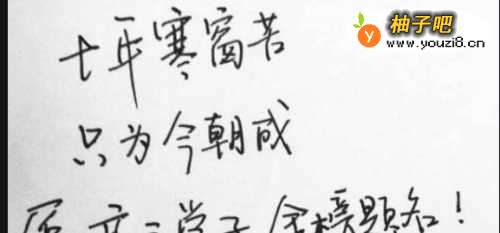 柚子吧
www.youzi8.cn
十年寒窗苦
只为今朝成
金榜题名！